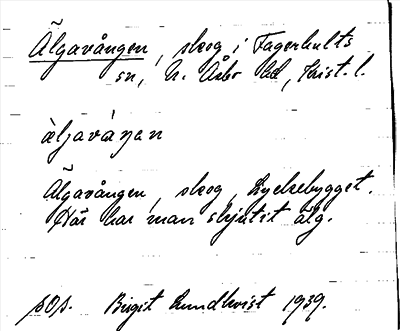 Älgavången, skog i Fagerhults
sn, N. Åsbo hd, Krist. l.
àljavàŋen
Älgavången, skog, Lyelsebygget.
Här har man skjutit älg.
pOp. Birgit Lundkvist 1939.